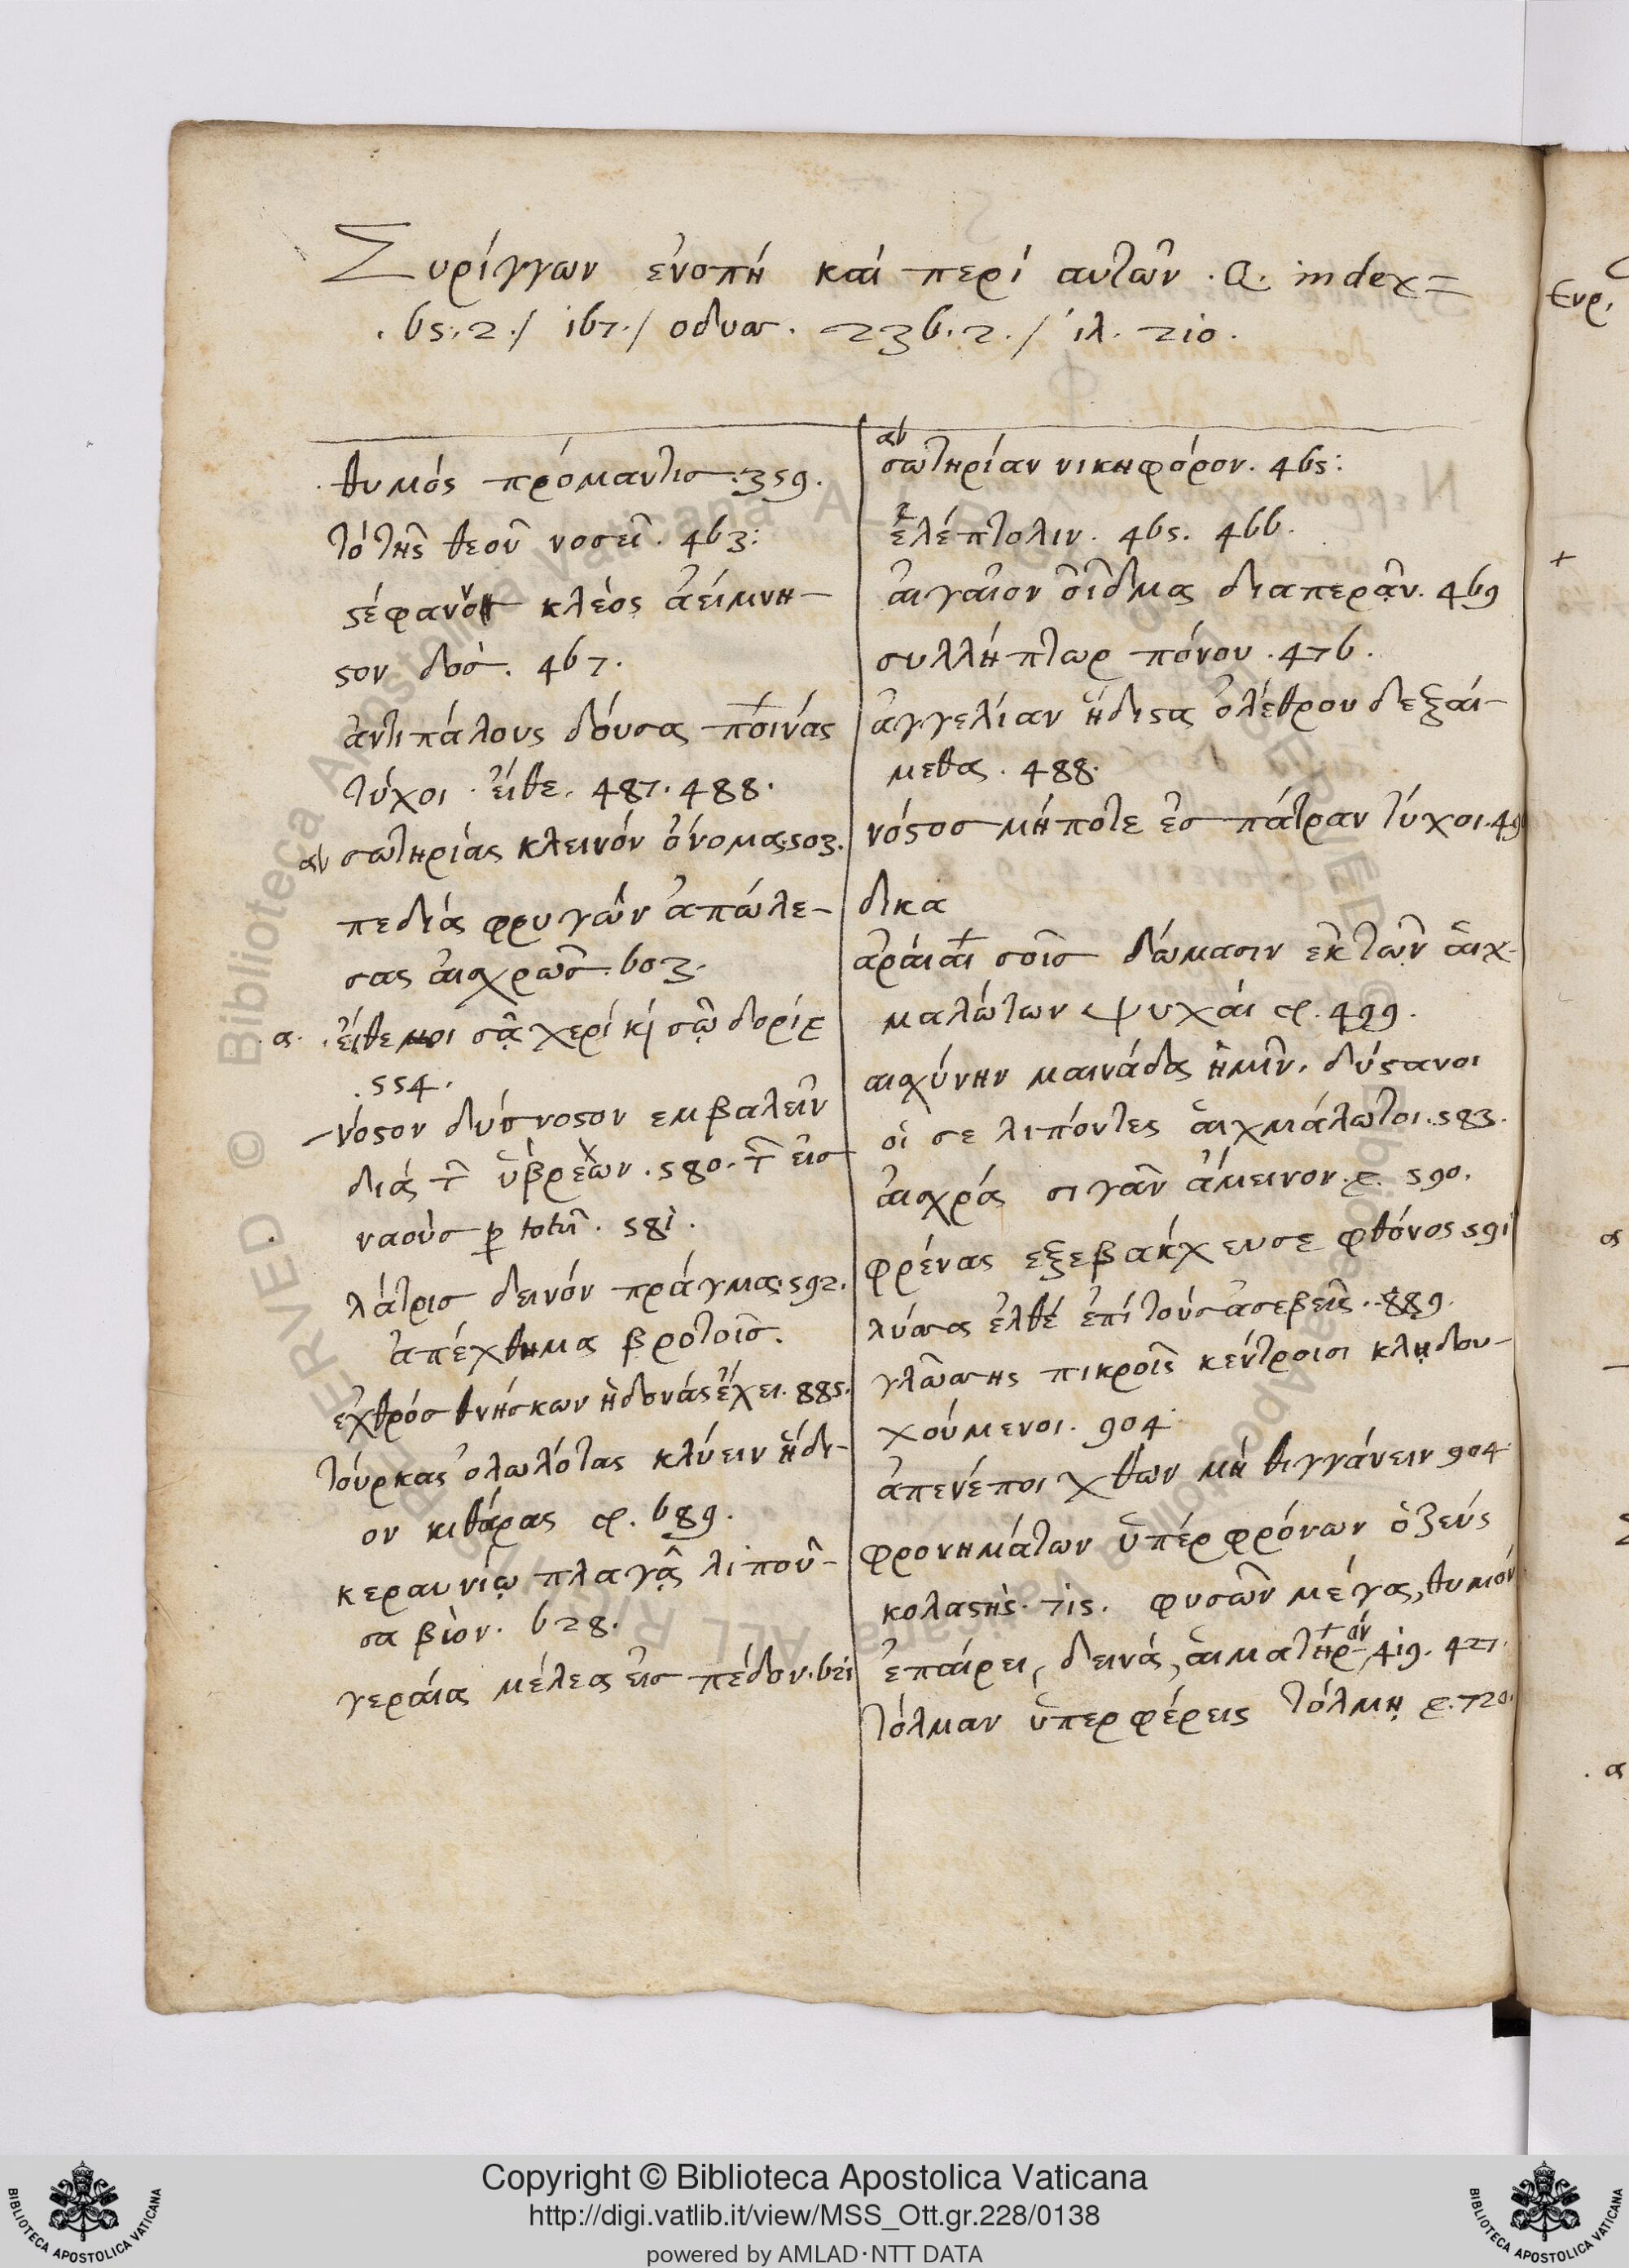 Συρίγγων ἐνοπή καί περί αυτῶν . Q. index =
. 65. 2. / 167. / οδυσ. 236. 2. / ιλ. 210.
θυμός πρόμαντισ . 359.
τό τῆς θεοῦ νοσεῖ . 463 :
κλέος ἀείμνη-
ςον δοσ . 467.
ἀντιπάλους δόυσα ποινάς
τύχοι . εἴθε . 487. 488.
σωτηρίας κλεινόν ὄνομα 503.
πεδιάς φρυγῶν ἀπώλε-
σας ἀισχρῶσ . 603.
α . εἴθε μοι σᾷ χερί κ σῷ δορίε
. 554.
νόσον δύσνοσον εμβαλεῖν
διά τ ὑβρεων . 580. τ εισ
ναούσ p totu . 581.
λάτρισ δεινόν πράγμα 592.
ἀπέχθημα βροτοῖσ .
ἐχθρόσ θνήσκων ἡδονάς ἔχει . 885.
τόυρκας ὀλωλότας κλύειν ἥδι-
ον κιθάρας φ. 689.
κεραυνίῳ πλαγᾷ λιποῦ-
σα βίον . 628.
γεράιας μέλεα εἰσ πέδον . 621
σωτηρίαν νικηφόρον . 465 :
ἑλέπτολιν . 465. 466.
ἀιγαῖον οἶδμα διαπερᾷν . 469
συλλήπτωρ πόνου . 476.
ἀγγελίαν ἥδιςα ὀλέθρου δεξάι-
μεθα . 488.
νόςοσ μήποτε ἐσ πάτραν τύχοι . 49
δικα
ἀράιαι σοῖσ δώμασιν ἐκ τῶν ἀιχ-
μαλώτων ψυχάι φ. 499.
αισχύνην μαινάδα ἡμῖν . δύςανοι
οἵ σε λιπόντες ἀιχμάλωτοι . 583.
ἀισχρά σιγᾶν ἄμεινον . ε. 590.
φρένας εξεβακχευσε φθόνος 591
λύσσα ἐλθέ ἐπί τούσ ἀσεβεῖς . 889.
γλώσσης πικροῖς κέντροισι κλῃδου-
χούμενοι . 904
ἀπενέποι χθων μή θιγγάνειν 904
φρονημάτων ὑπέρφρόνων ὁ ζεύς
κολαςής . 715. φυσῶν μέγα, θυμόν
ἐπάιρει, δεινά, ἁιματηρ- 419. 427.
τόλμαν ὑπερφέρεις τόλμῃ ε. 720.
Ευρ.
Copyright © Biblioteca Apostolica Vaticana
http://digi.vatlib.it/view/MSS_Ott.gr.228/0138
powered by AMLAD·NTT DATA
BIBLIOTECA APOSTOLICA VATICANA
BIBLIOTECA APOSTOLICA VATICANA